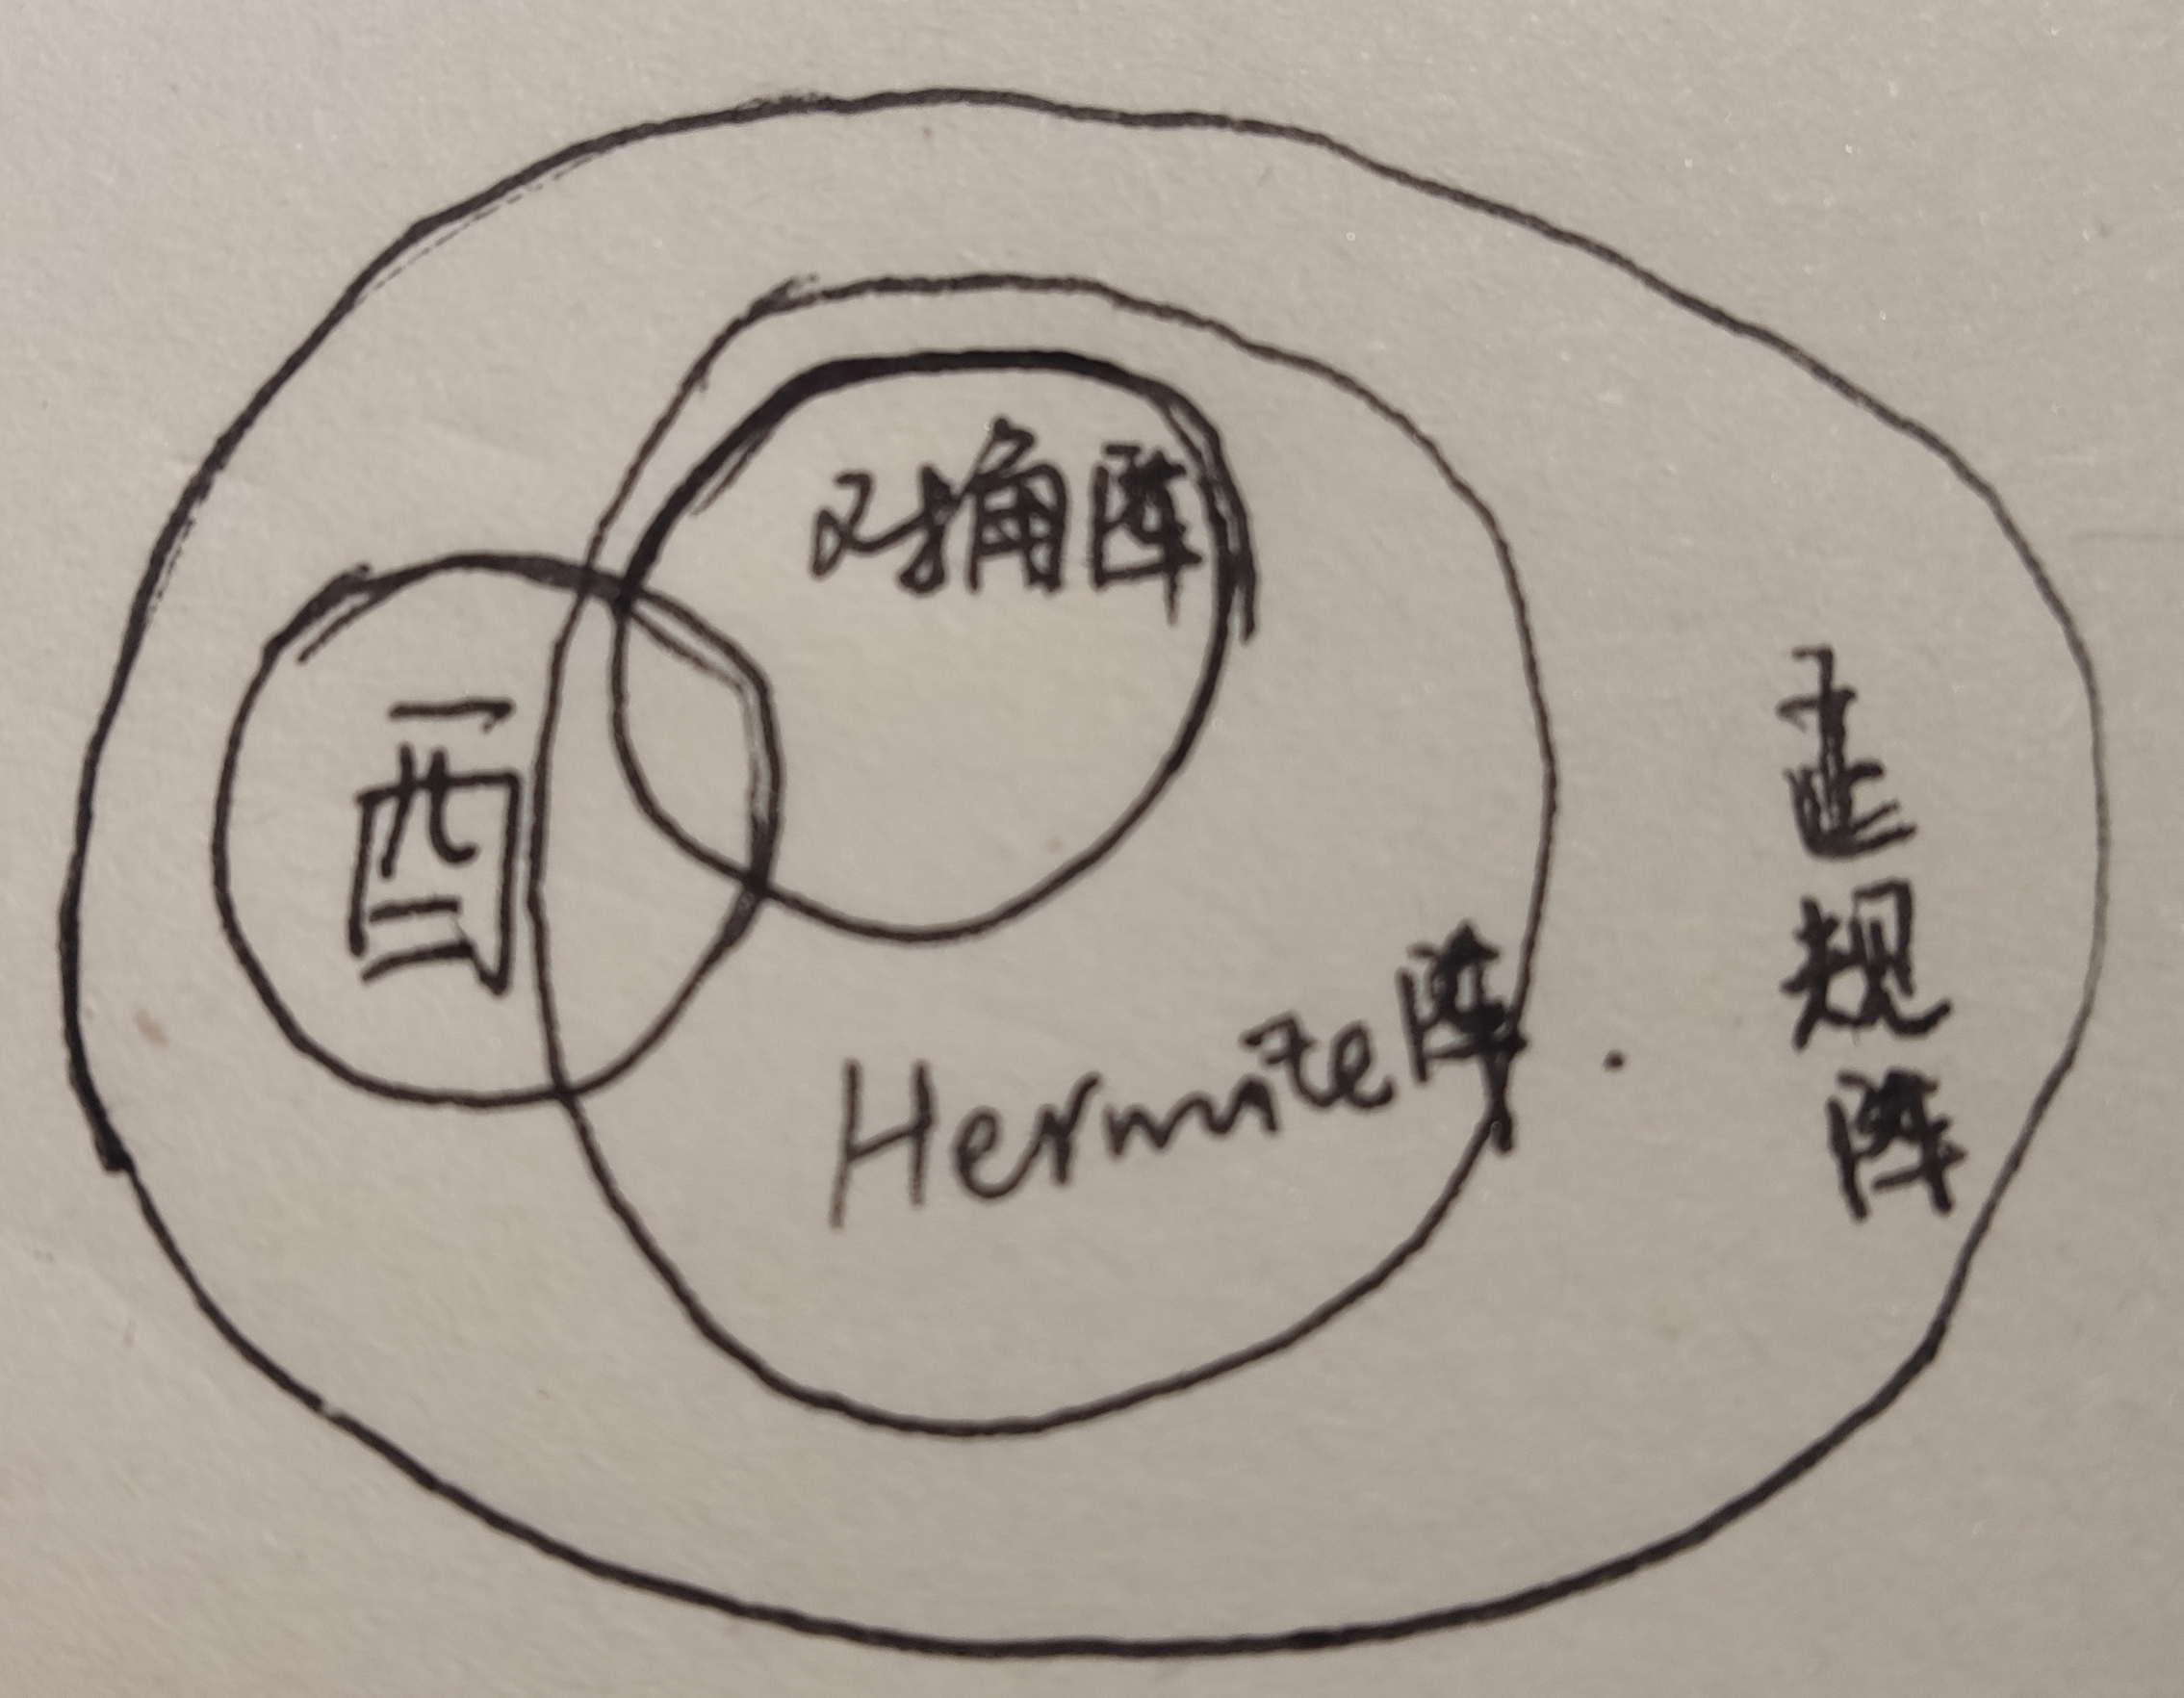 对角阵
酉
正规阵
Hermite阵